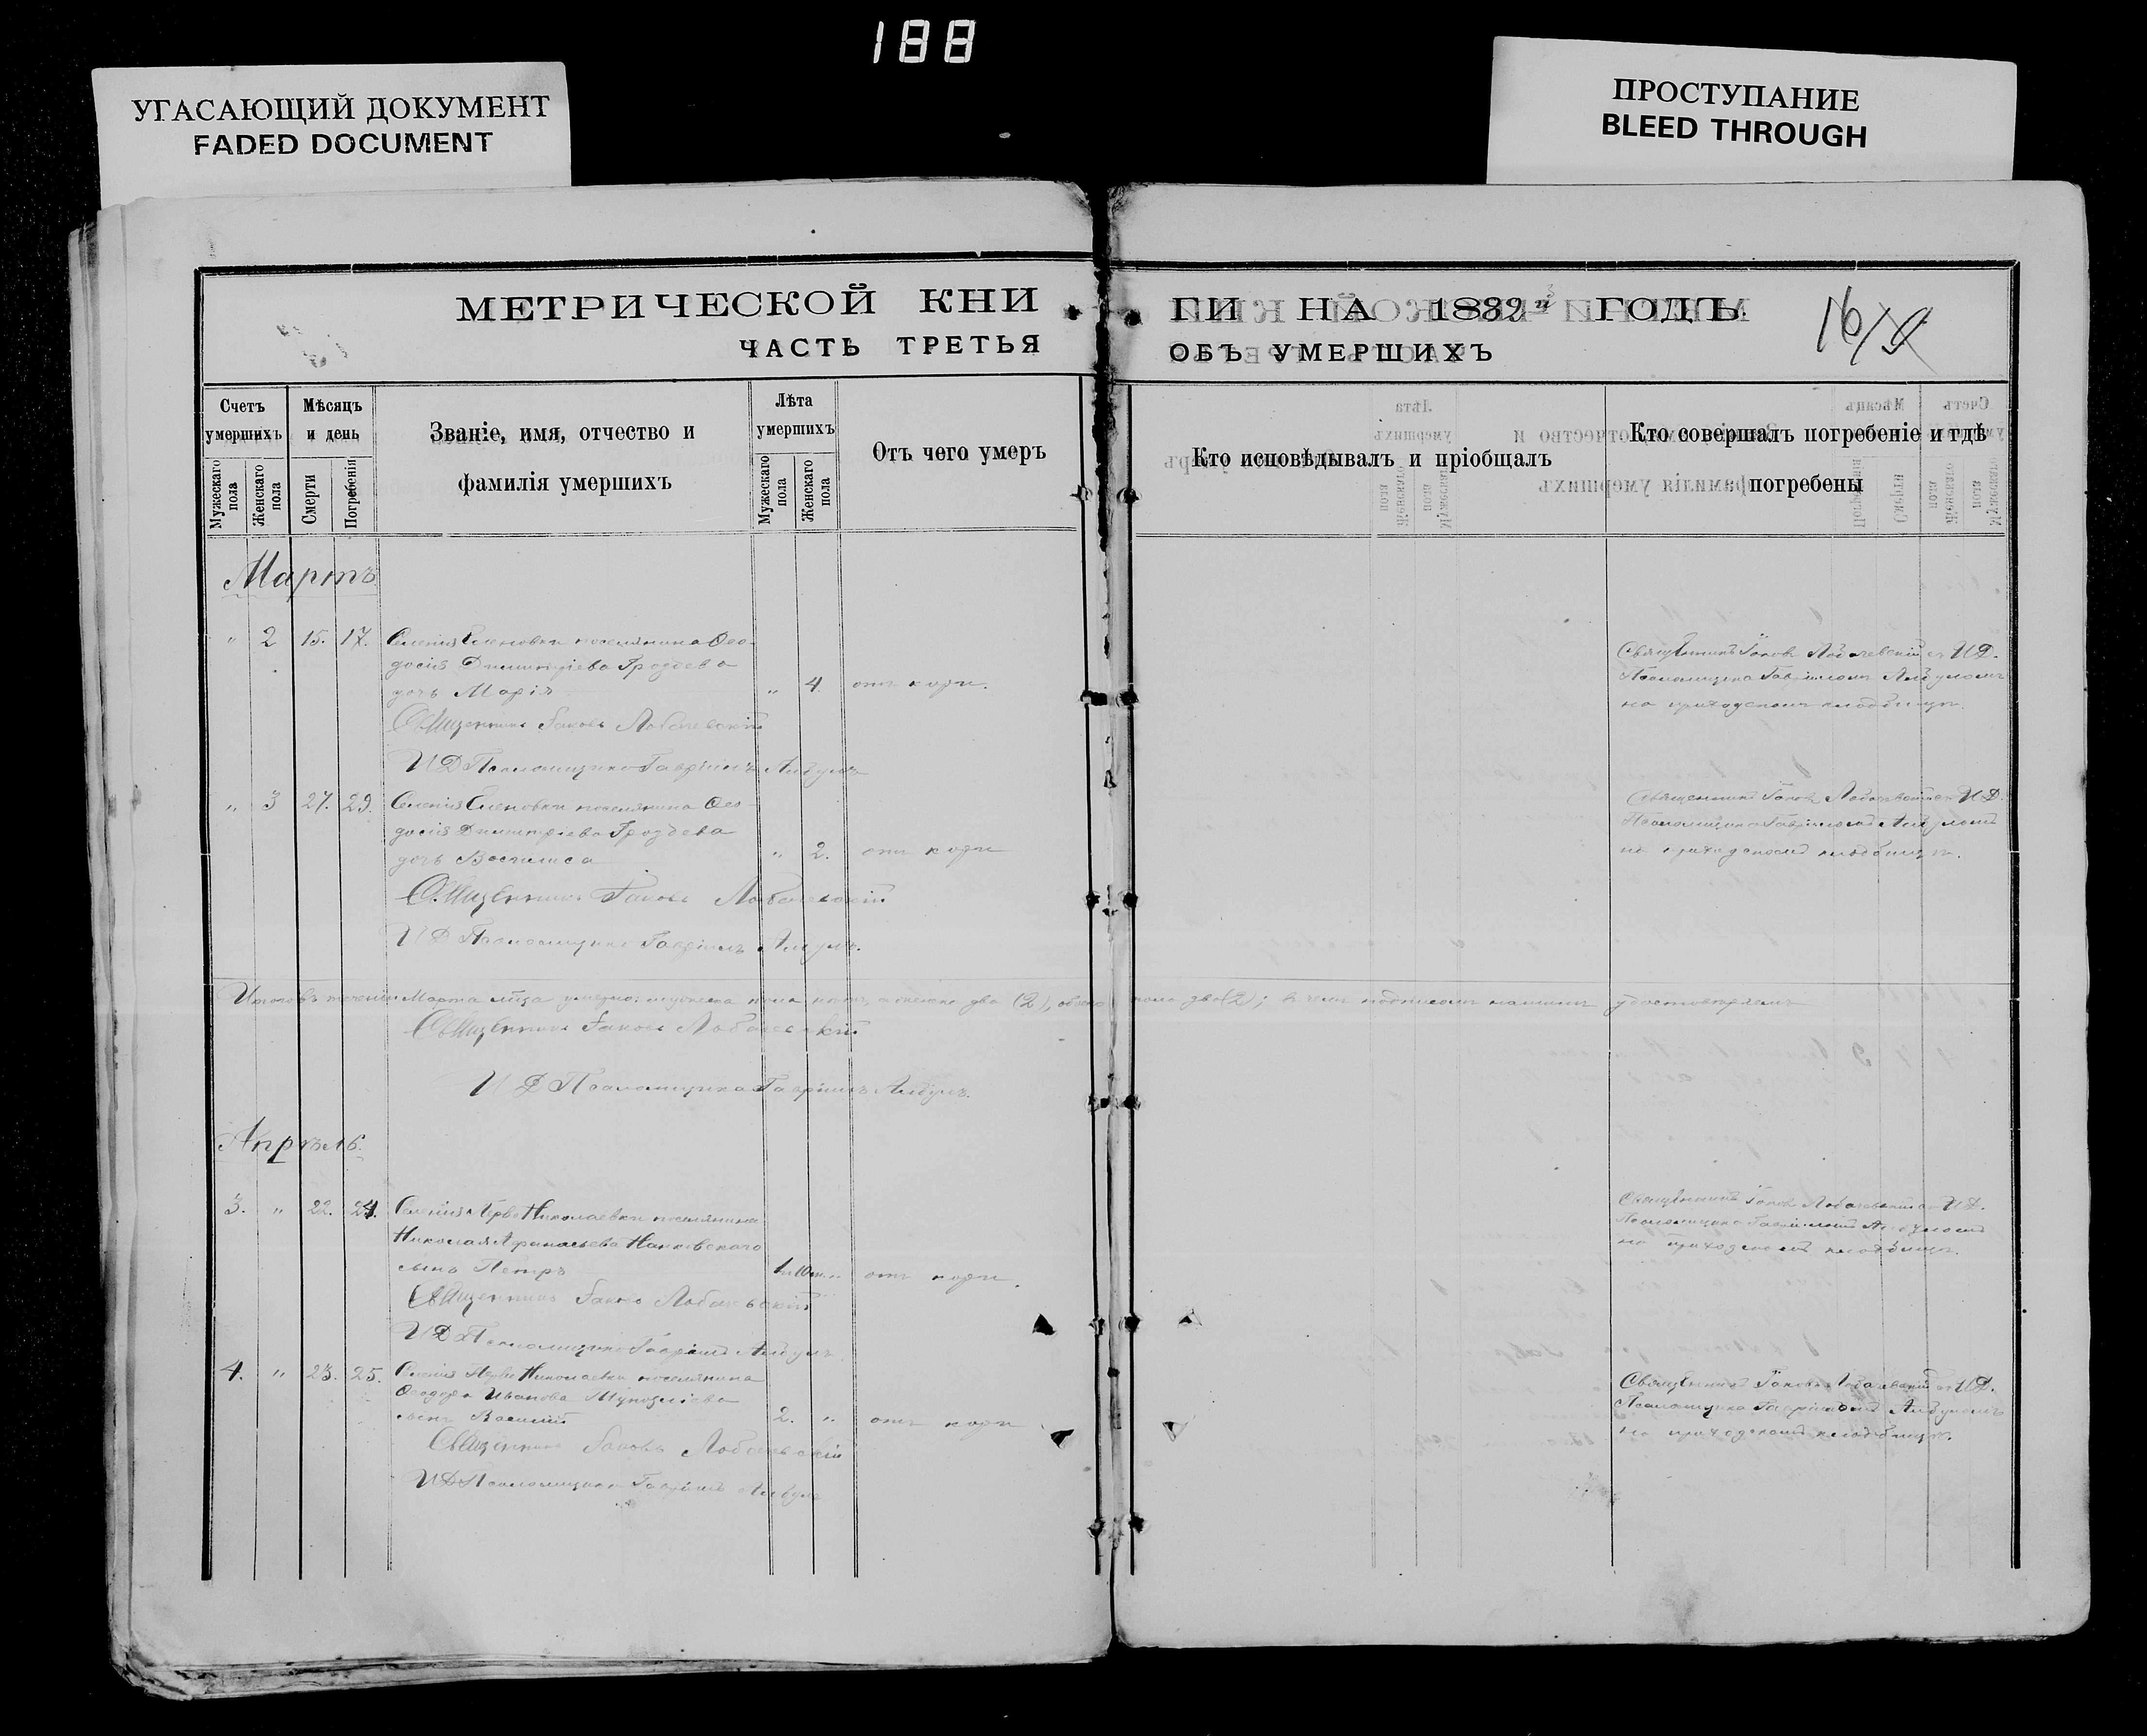 188
УГАСАЮЩИЙ ДОКУМЕНТ
FADED DOCUMENT
ПРОСТУПАНИЕ
BLEED THROUGH
МЕТРИЧЕСКОЙ КНИ
ГИ НА 1882 й ГОДЪ
ЧАСТЬ ТРЕТЬЯ
ОБЪ УМЕРШИХЪ
16/
Счетъ умершихъ
Мужескаго пола
Женскаго пола
Мѣсяцъ и день
Смерти
Погребенія
Званіе, имя, отчество и
фамилія умершихъ
Лѣта умершихъ
Мужескаго пола
Женскаго пола
Отъ чего умеръ
Кто исповѣдывалъ и пріобщалъ
Кто совершалъ погребеніе и гдѣ
погребены
Мартъ
" 2 15. 17. Селенія Еленовки поселянина Ѳео-
досія Димитріева Гроздева
дочь Марія " 4 отъ кори.
Священникъ Іаковъ Лобачевскій
И Д Псаломщика Гавріилъ Албулъ
Священникъ Іаковъ Лобачевскій съ И Д.
Псаломщика Гавріиломъ Албуломъ
на приходскомъ кладбищѣ.
" 3 27. 29. Селенія Еленовки поселянина Ѳео-
досія Димитріева Гроздева
дочь Василиса " 2. отъ кори
Священникъ Іаковъ Лобачевскій
И Д Псаломщика Гавріилъ Албулъ.
Священникъ Іаковъ Лобачевскій съ И Д.
Псаломщика Гавріиломъ Албуломъ
на приходскомъ кладбищѣ.
Итого въ теченіи Марта м-ца умерло: мужеска пола нѣтъ, а женска два (2), обоего пола два (2); въ чемъ подписомъ нашимъ удостовѣряемъ
Священникъ Іаковъ Лобачевскій
И Д Псаломщика Гавріилъ Албулъ.
Апрѣль.
3. " 22. 24. Селенія Перво Николаевки поселянина
Николая Афанасьева
сынъ Петръ 1 10 м. " отъ кори.
Священникъ Іаковъ Лобачевскій
И Д Псаломщика Гавріилъ Албулъ
Священникъ Іаковъ Лобачевскій съ И Д.
Псаломщика Гавріиломъ Албуломъ
на приходскомъ кладбищѣ.
4. " 23. 25. Селенія Перво Николаевки поселянина
Ѳеодора Иванова
сынъ Василій 2. " отъ кори
Священникъ Іаковъ Лобачевскій
И Д Псаломщика Гавріилъ Албулъ
Священникъ Іаковъ Лобачевскій съ И Д.
Псаломщика Гавріиломъ Албуломъ
на приходскомъ кладбищѣ.